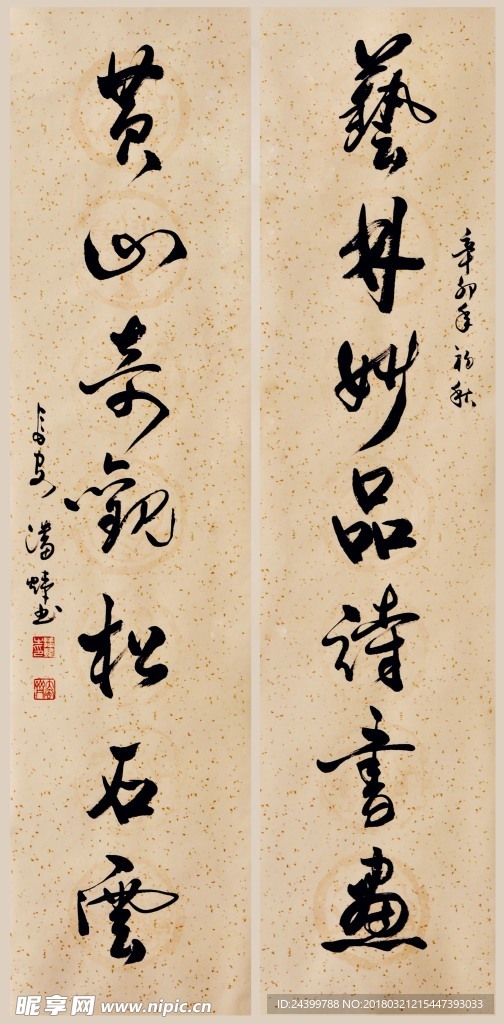 辛卯年初秋
藝林妙品詩書畫
黄山奇觀松石雲
長安
書
昵享网 www.nipic.cn
ID:24399788 NO:20180321215447393033